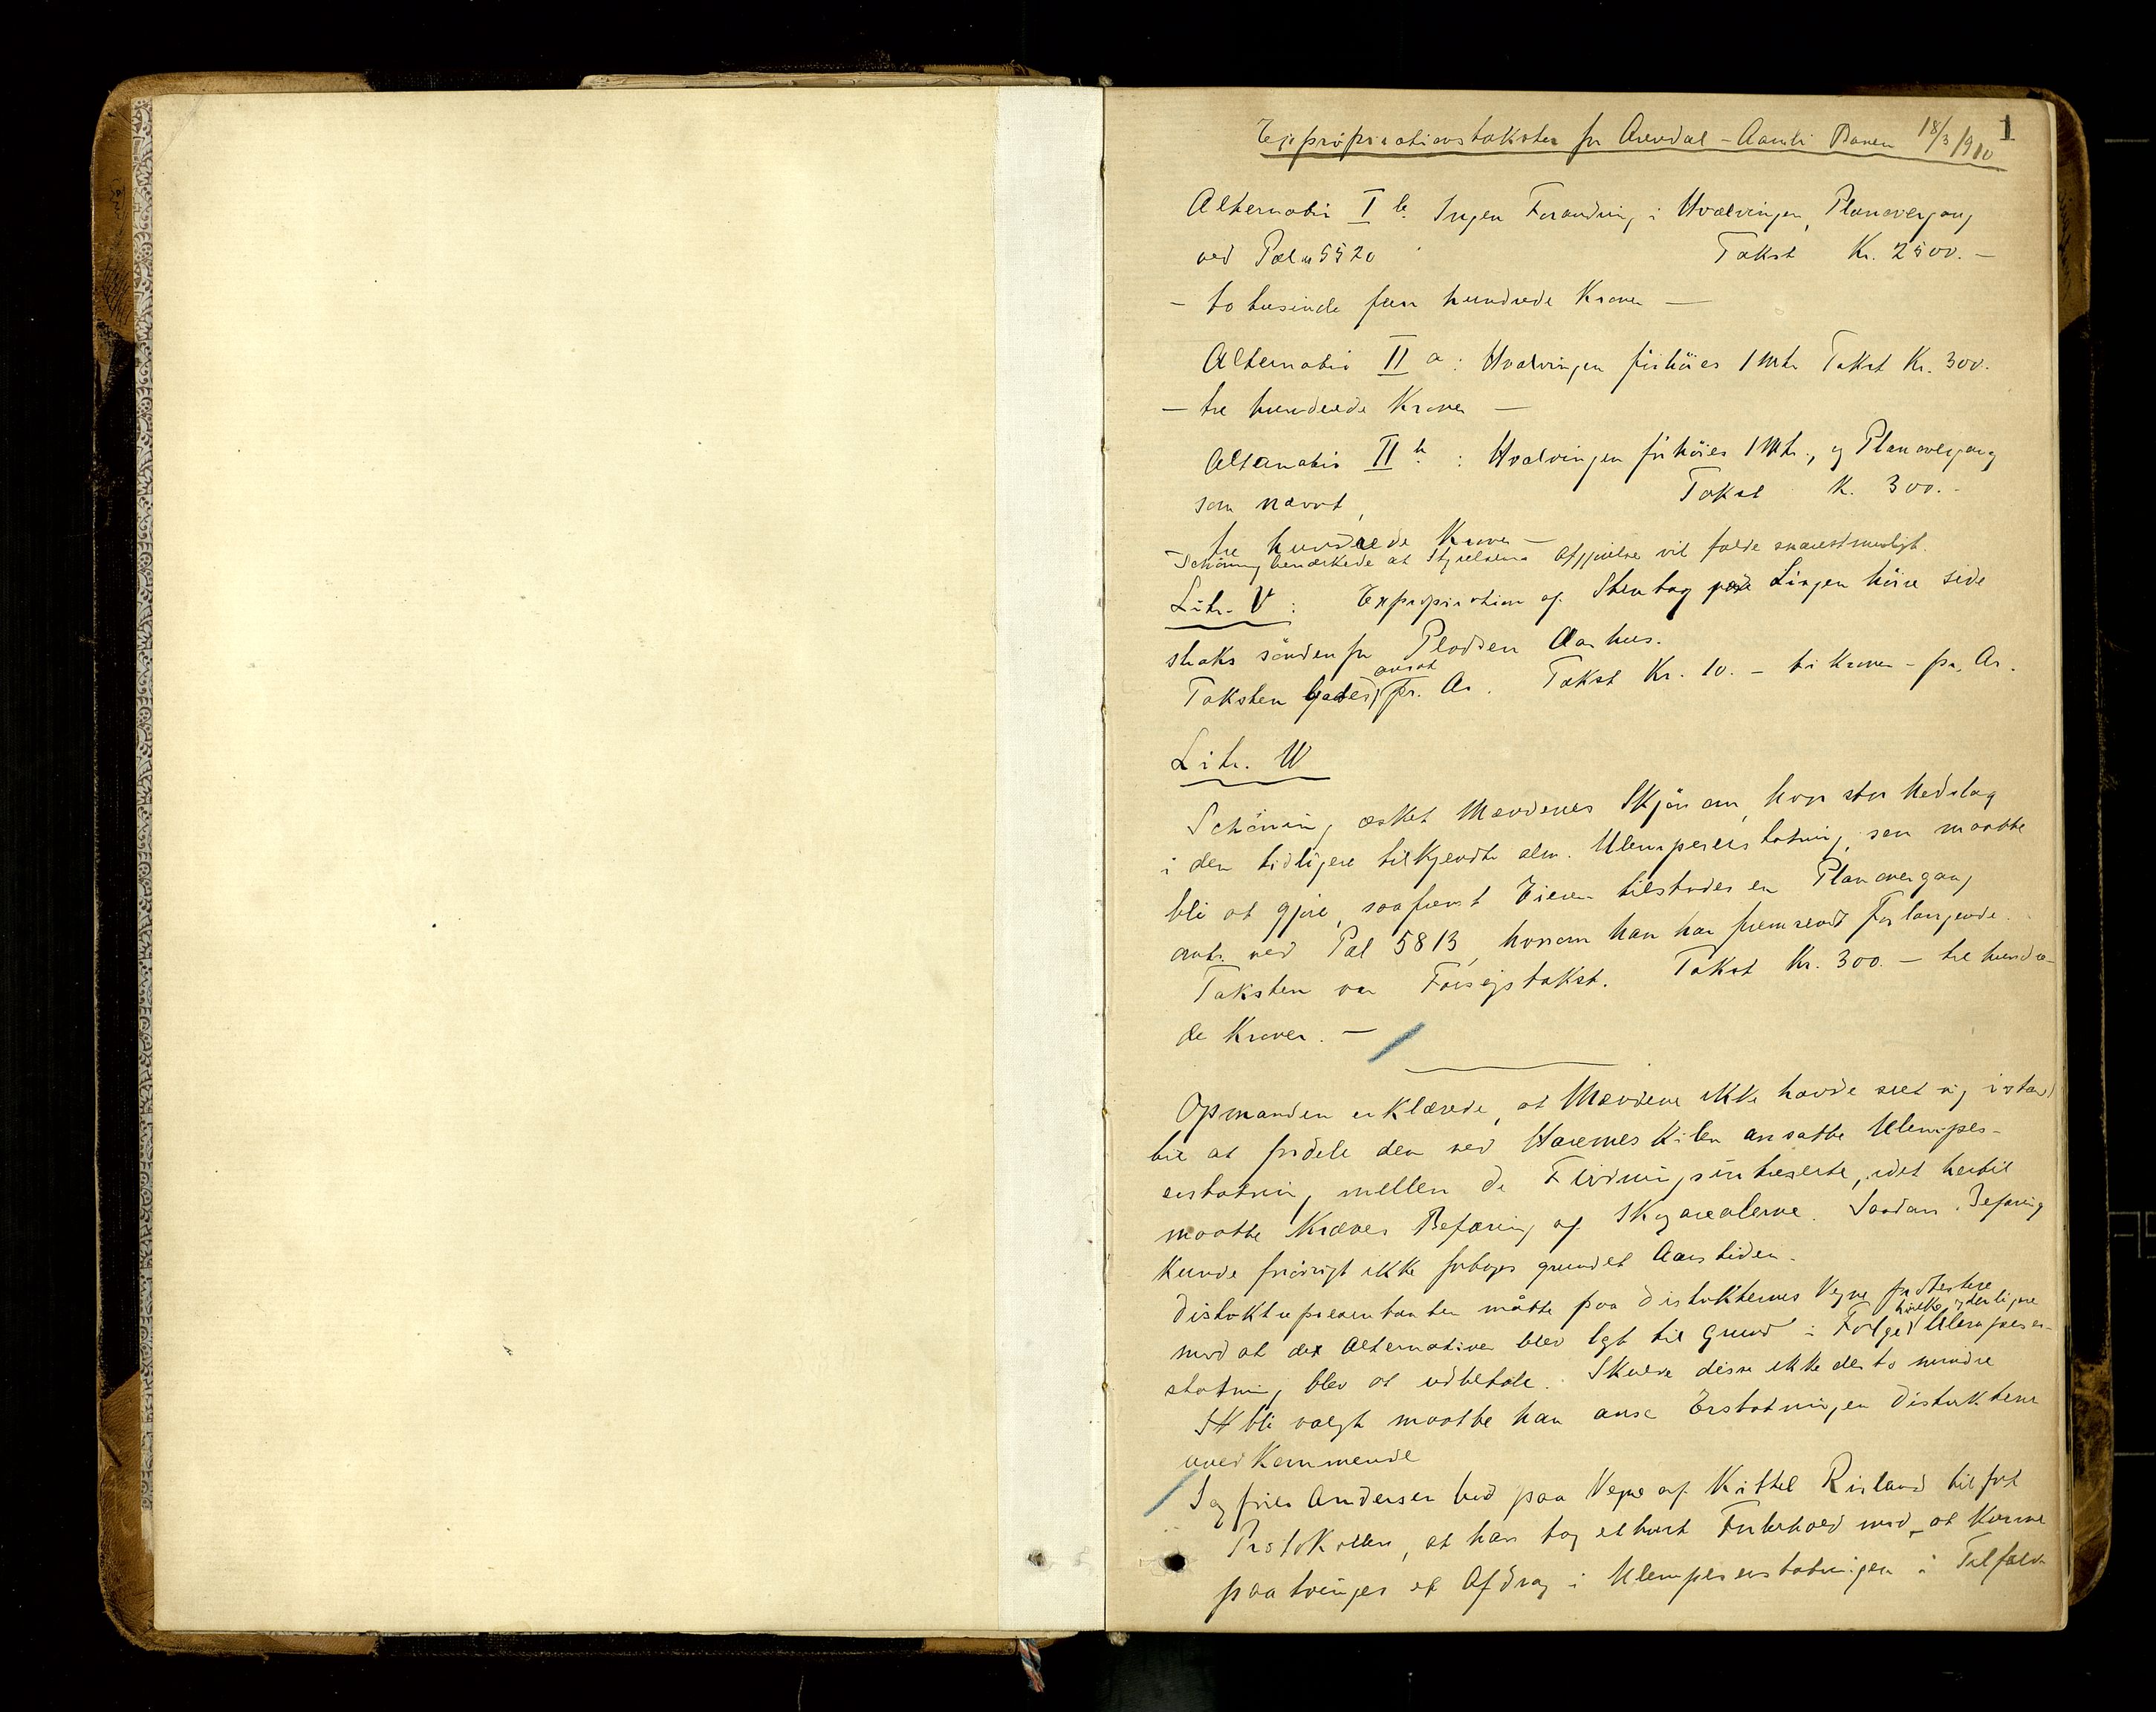 1
Expropriationstakster for Arendal-Aamli Banen 18/3 1910
Alternativ I b. Ingen Forandring i Hvælvingen, Planovergang
ved Pæl 5520 Takst Kr. 2500.-
- to tusinde fem hundrede Kroner -
Alternativ II a: Hvælvingen forhöies 1 Mtr Takst Kr. 300.
- tre hundrede Kroner -
Alternativ II b: Hvælvingen forhöies 1 Mtr., og Planovergang
som nævnt, Takst K. 300.-
tre hundrede Kroner -
Schöning bemærkede at Styrelsens Afgjörelse vil falde snarest muligt.
Litr. V: Expropriation af Stentag paa Linjen höire side
straks sönden for Pladsen Aarhus.
Taksten ansat pr. Ar. Takst Kr. 10. - ti Kroner - pr. Ar.
Litr. W
Schöning æsket Mændenes Skjön om, hvor stor Nedslag
i den tidligere tilkjendte alm. Ulempeserstatning, som maatte
bli at gjöre, saafremt Eieren tilstodes en Planovergang
omtr. ved Pæl 5813, hvorom han har fremsendt Forlangende.
Taksten var Forsögstakst. Takst Kr. 300. - tre hundre-
de Kroner. -
Opmanden erklærede, at Mændene ikke havde seet sig istand
til at fordele den ved Kilen ansatte Ulempes-
erstatning mellem de Flödningsinteresserte, idet hertil
maatte kræves Befaring af Skogarealerne. Saadan Befaring
kunde forövrigt ikke foretages grundet Aarstiden.
Distriktsrepresentanten måtte paa distrikternes Vegne protestere
mod at det Alternativ blev lagt til Grund i Fölge hvilke yderligere Ulempeser-
statning blev at udbetale. Skulde disse ikke desto mindre
bli valgt maatte han anse Erstatningen Distrikterne
uvedkommende
Sagförer Andersen bad paa Vegne af Kittel Risland tilfört
Protokollen, at han tog ethvert Forbehold mod, at kunne
paatvinges et Afdrag i Ulempeserstatningen i Tilfælde